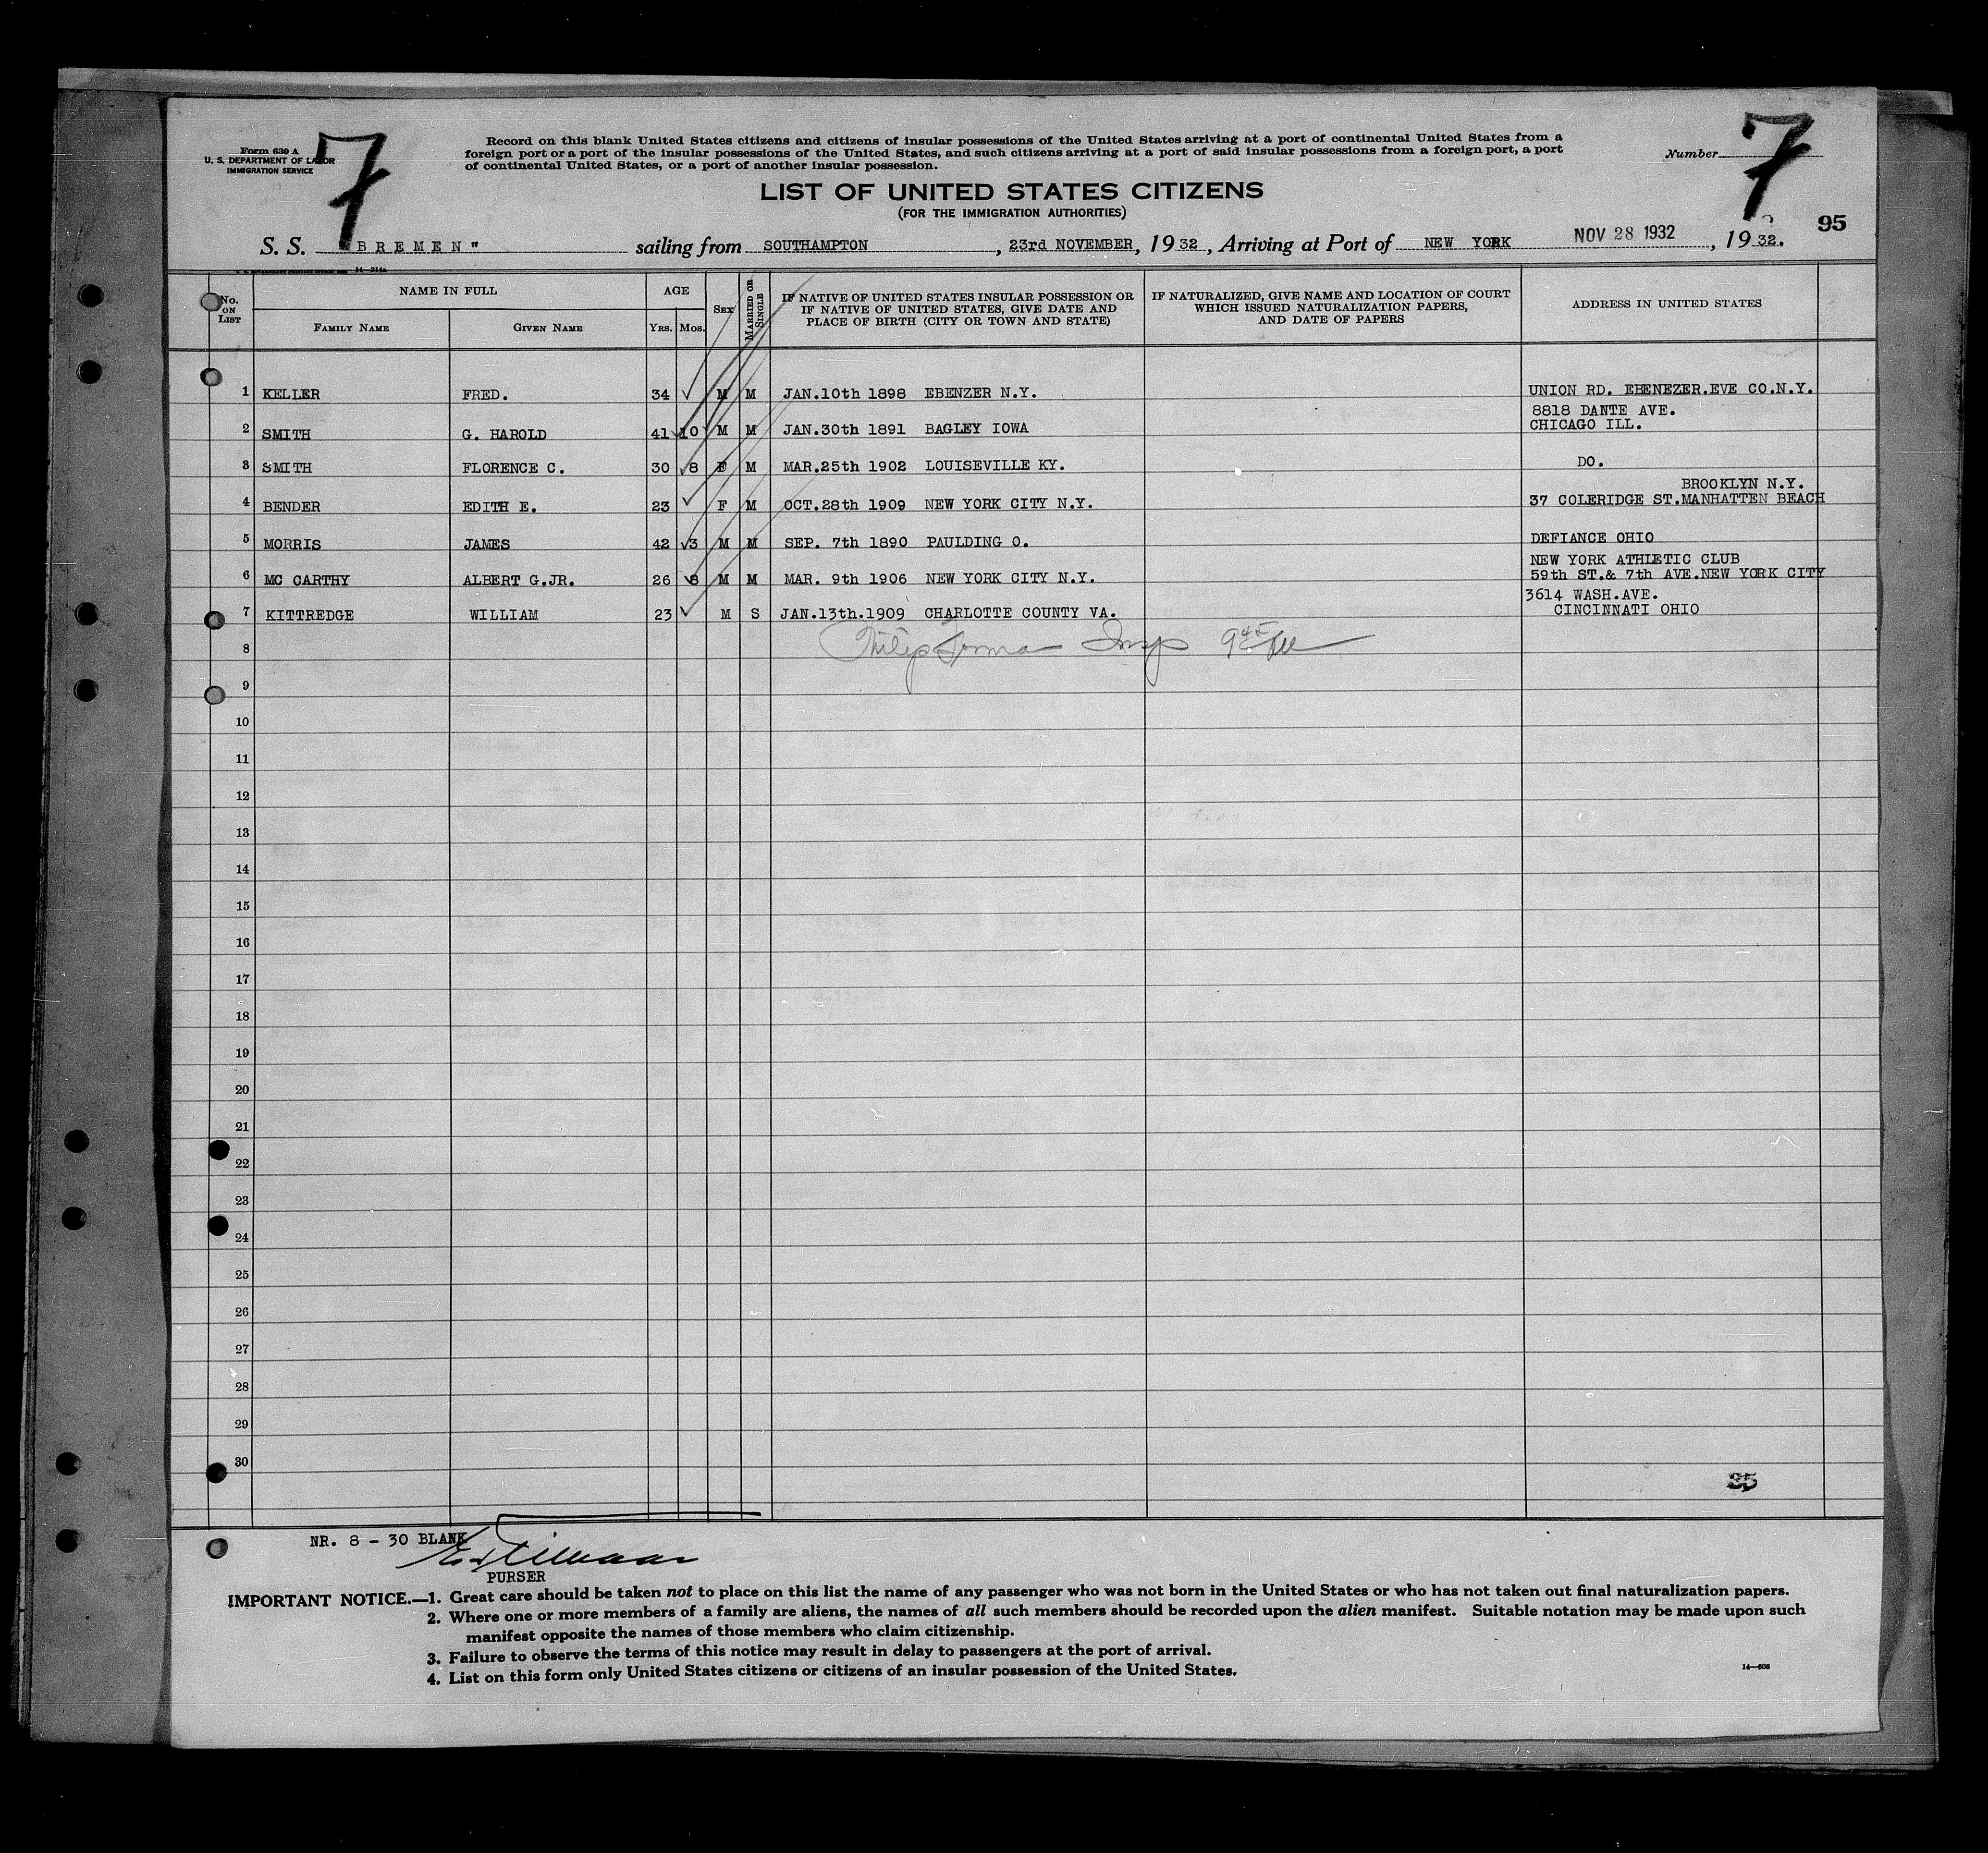 Form 630 A
U. S. DEPARTMENT OF LABOR
IMMIGRATION SERVICE
7
Record on this blank United States citizens and citizens of insular possessions of the United States arriving at a port of continental United States from a
foreign port or a port of the insular possessions of the United States, and such citizens arriving at a port of said insular possessions from a foreign port, a port
of continental United States, or a port of another insular possession.
Number 7
LIST OF UNITED STATES CITIZENS
(FOR THE IMMIGRATION AUTHORITIES)
95
S. S. "BREMEN" sailing from SOUTHAMPTON, 23rd NOVEMBER, 1932, Arriving at Port of NEW YORK NOV 28 1932, 1932.
No. ON LIST NAME IN FULL AGE SEX MARRIED OR SINGLE IF NATIVE OF UNITED STATES INSULAR POSSESSION OR IF NATIVE OF UNITED STATES, GIVE DATE AND PLACE OF BIRTH (CITY OR TOWN AND STATE) IF NATURALIZED, GIVE NAME AND LOCATION OF COURT WHICH ISSUED NATURALIZATION PAPERS, AND DATE OF PAPERS ADDRESS IN UNITED STATES
FAMILY NAME GIVEN NAME YRS. MOS.
1 KELLER FRED. 34 M M JAN.10th 1898 EBENZER N.Y. UNION RD. EBENEZER.EVE CO.N.Y.
8818 DANTE AVE.
2 SMITH G. HAROLD 41 10 M M JAN.30th 1891 BAGLEY IOWA CHICAGO ILL.
3 SMITH FLORENCE C. 30 8 F M MAR.25th 1902 LOUISEVILLE KY. DO.
BROOKLYN N.Y.
4 BENDER EDITH E. 23 F M OCT.28th 1909 NEW YORK CITY N.Y. 37 COLERIDGE ST.MANHATTEN BEACH
5 MORRIS JAMES 42 3 M M SEP. 7th 1890 PAULDING O. DEFIANCE OHIO
NEW YORK ATHLETIC CLUB
6 MC CARTHY ALBERT G.JR. 26 8 M M MAR. 9th 1906 NEW YORK CITY N.Y. 59th ST.& 7th AVE.NEW YORK CITY
3614 WASH.AVE.
7 KITTREDGE WILLIAM 23 M S JAN.13th.1909 CHARLOTTE COUNTY VA. CINCINNATI OHIO
8 Philip Insp
9
10
11
12
13
14
15
16
17
18
19
20
21
22
23
24
25
26
27
28
29
30
NR. 8 - 30 BLANK
PURSER
IMPORTANT NOTICE.—1. Great care should be taken not to place on this list the name of any passenger who was not born in the United States or who has not taken out final naturalization papers.
2. Where one or more members of a family are aliens, the names of all such members should be recorded upon the alien manifest. Suitable notation may be made upon such
manifest opposite the names of those members who claim citizenship.
3. Failure to observe the terms of this notice may result in delay to passengers at the port of arrival.
4. List on this form only United States citizens or citizens of an insular possession of the United States.
14—608